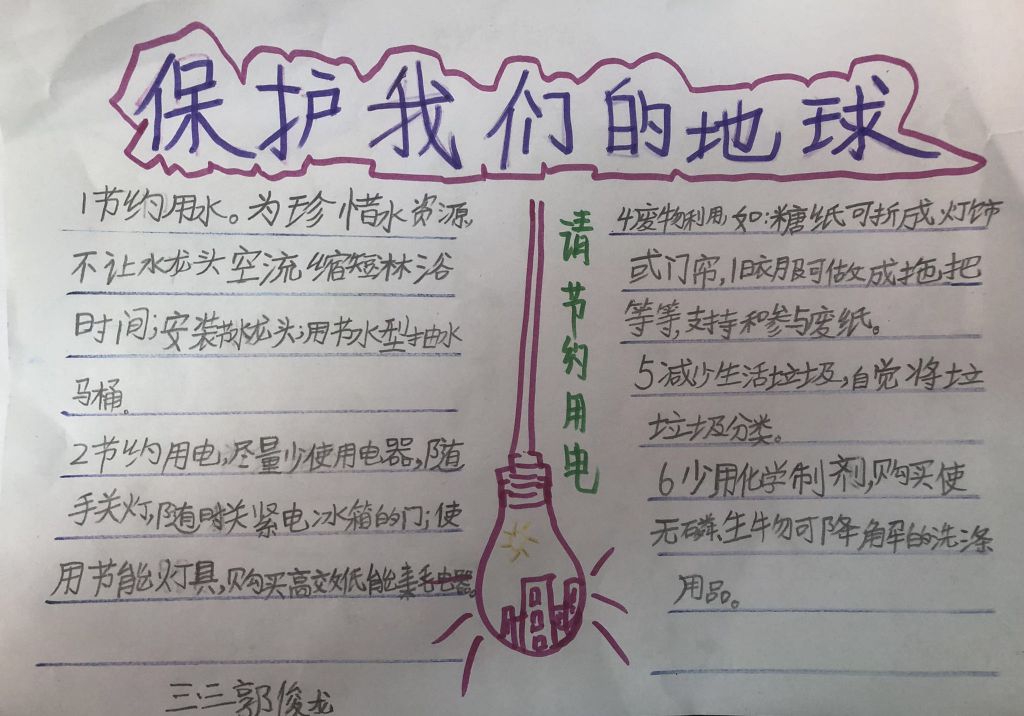 保护我们的地球
1节约用水。为珍惜水资源,
不让水龙头空流缩短林浴
时间;安装节水龙头;用节水型抽水
马桶。
2节约用电;尽量少使用电器,随
手关灯,随时关紧电冰箱的门;使
用节能灯具,购买高效低能耗电器。
三.三郭俊龙
请节约用电
4废物利用,如:糖纸可折成灯饰
或门帘,旧衣服可做成拖把
等等,支持和参与废纸。
5减少生活垃圾,自觉将垃
垃圾分类。
6少用化学制剂,购买使
无磷、生物可降解的洗涤
用品。